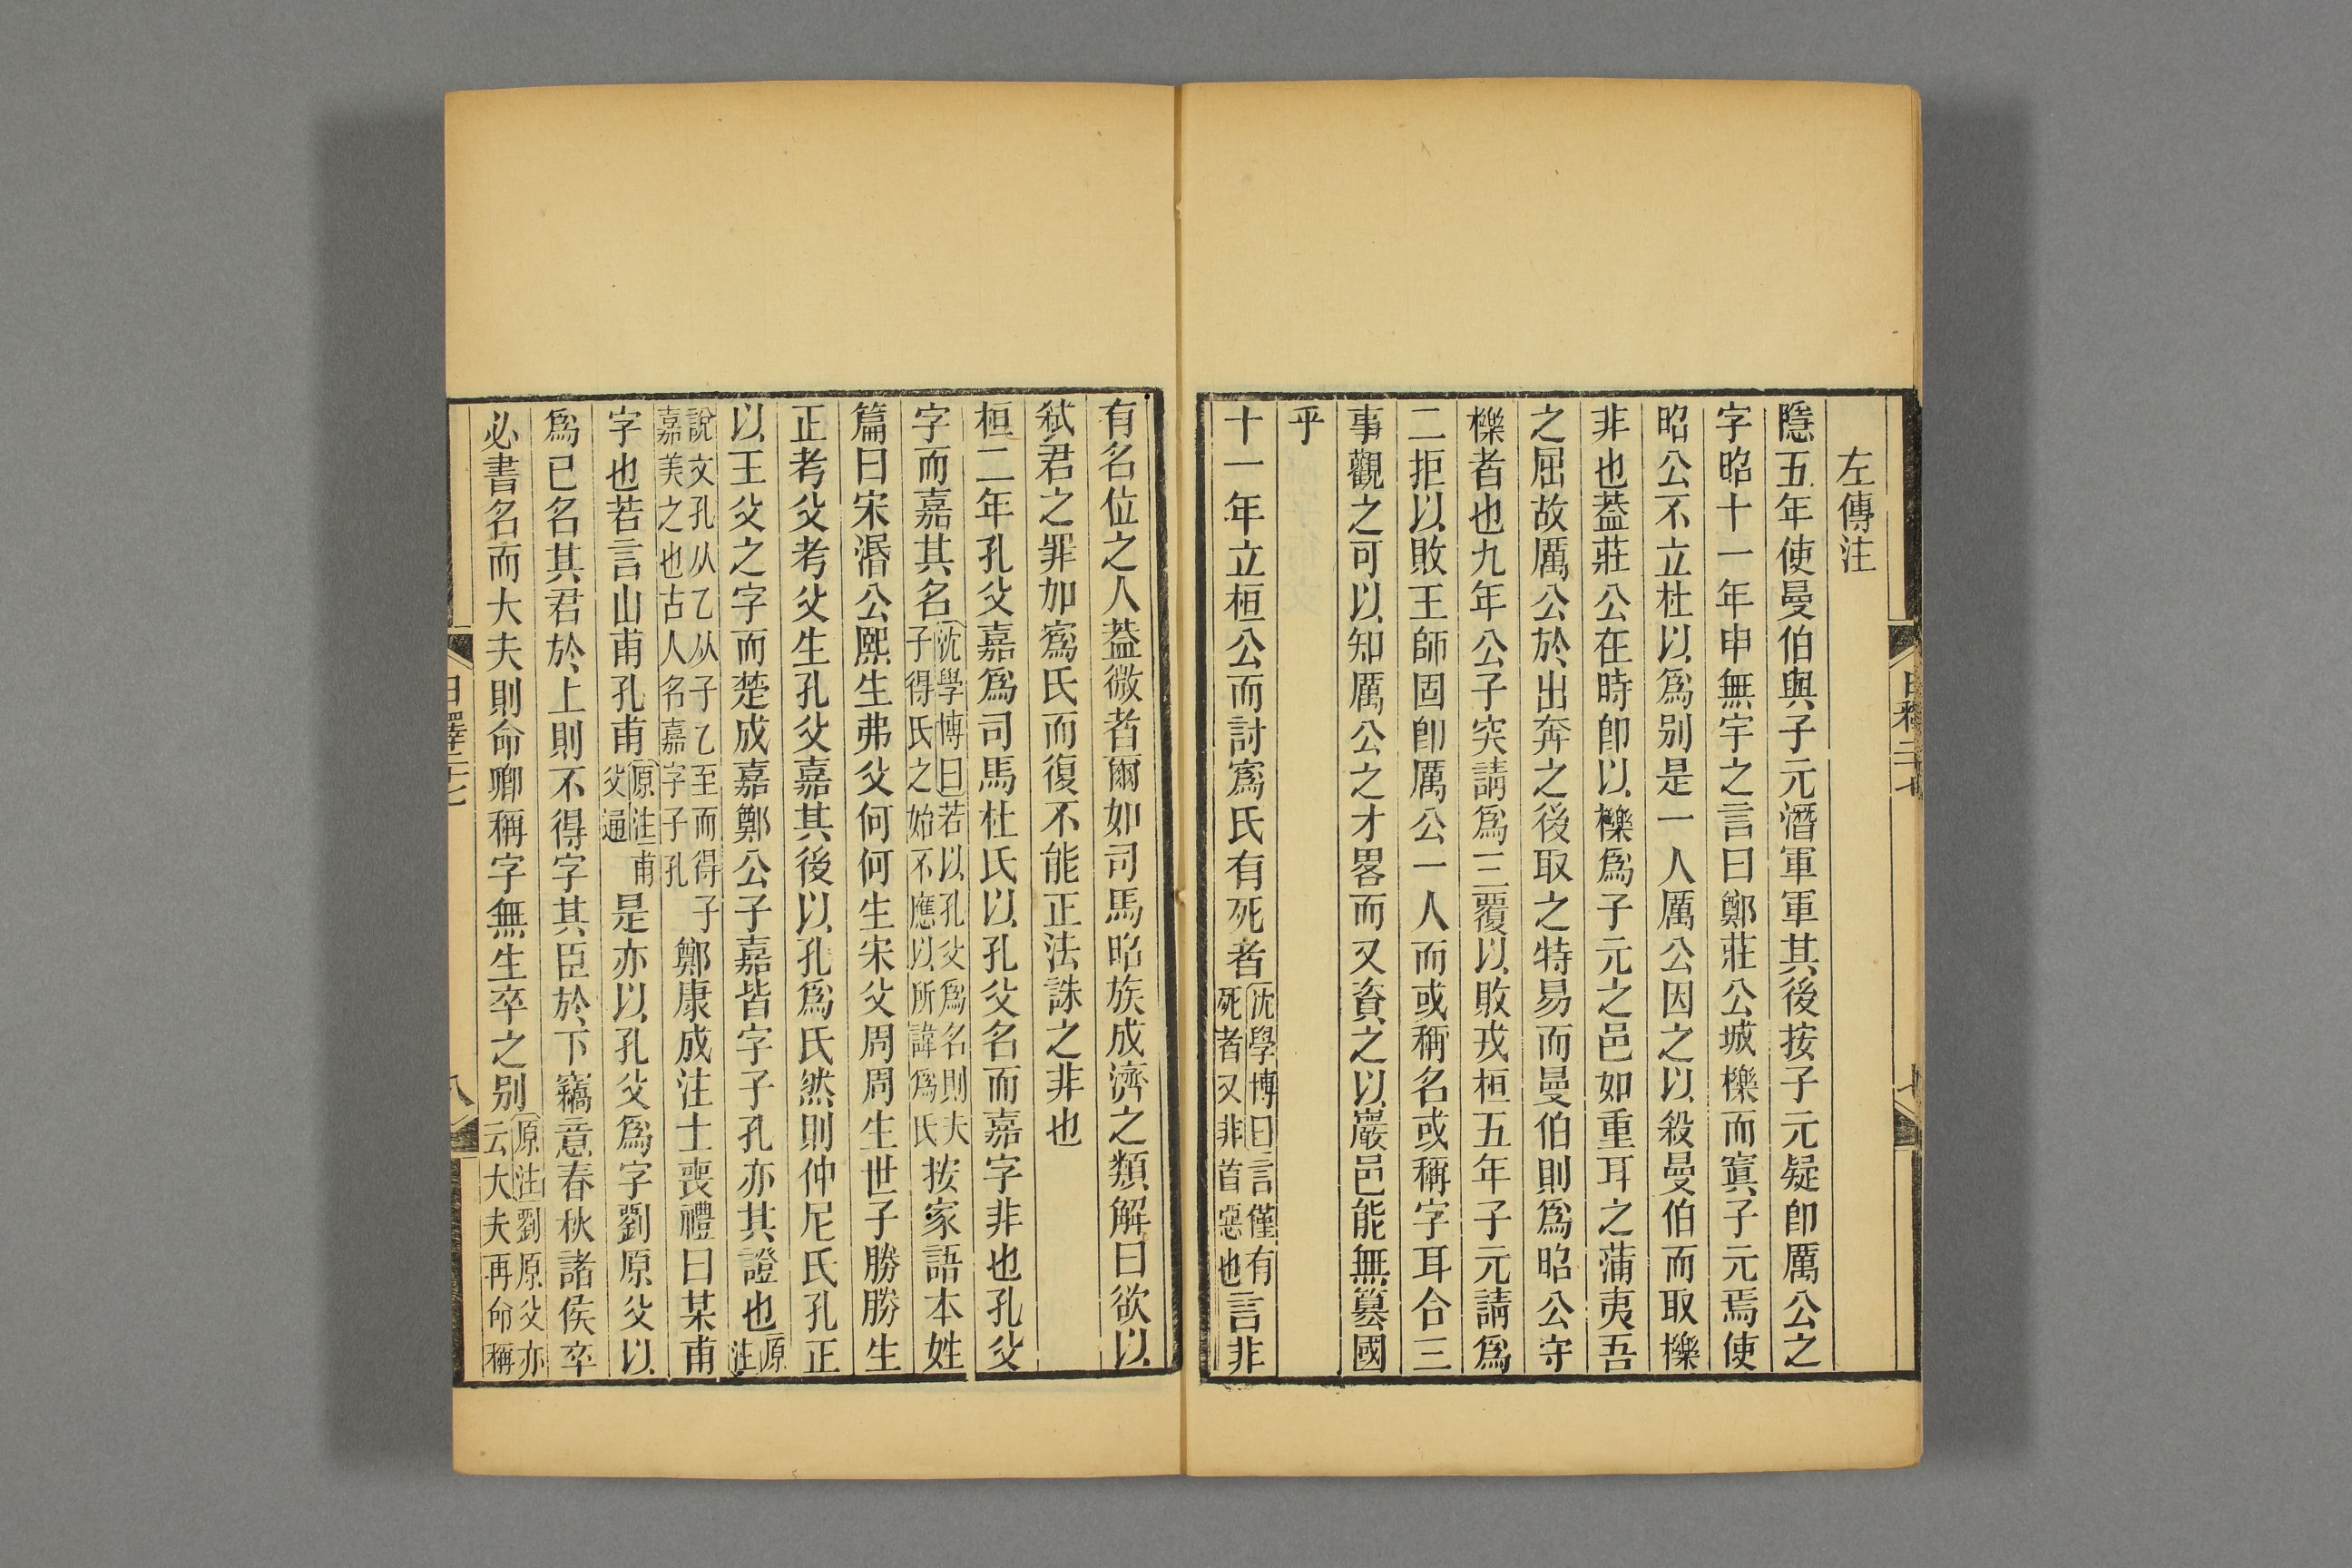 左傳注
隱五年使曼伯與子元潛軍軍其後按子元疑卽厲公之
字昭十一年申無宇之言曰鄭莊公城櫟而寘子元焉使
昭公不立杜以爲别是一人厲公因之以殺曼伯而取櫟
非也葢莊公在時卽以櫟爲子元之邑如重耳之蒲夷吾
之屈故厲公於出奔之後取之特易而曼伯則爲昭公守
櫟者也九年公子突請爲三覆以敗戎桓五年子元請爲
二拒以敗王師固卽厲公一人而或稱名或稱字耳合三
事觀之可以知厲公之才畧而又資之以巖邑能無篡國
乎
十一年立桓公而討寪氏有死者沈學博曰言僅有死者又非首惡也言非
有名位之人葢微者爾如司馬昭族成濟之類解曰欲以
弑君之罪加寪氏而復不能正法誅之非也
桓二年孔父嘉爲司馬杜氏以孔父名而嘉字非也孔父
字而嘉其名沈學博曰若以孔父爲名則夫子得氏之始不應以所諱爲氏按家語本姓
篇曰宋湣公熙生弗父何何生宋父周周生世子勝勝生
正考父考父生孔父嘉其後以孔爲氏然則仲尼氏孔正
以王父之字而楚成嘉鄭公子嘉皆字子孔亦其證也原注
說文孔从乙从子乙至而得子嘉美之也古人名嘉字子孔鄭康成注士喪禮曰某甫
字也若言山甫孔甫原注甫父通是亦以孔父爲字劉原父以
爲已名其君於上則不得字其臣於下竊意春秋諸侯卒
必書名而大夫則命卿稱字無生卒之别原注劉原父亦云大夫再命稱
八